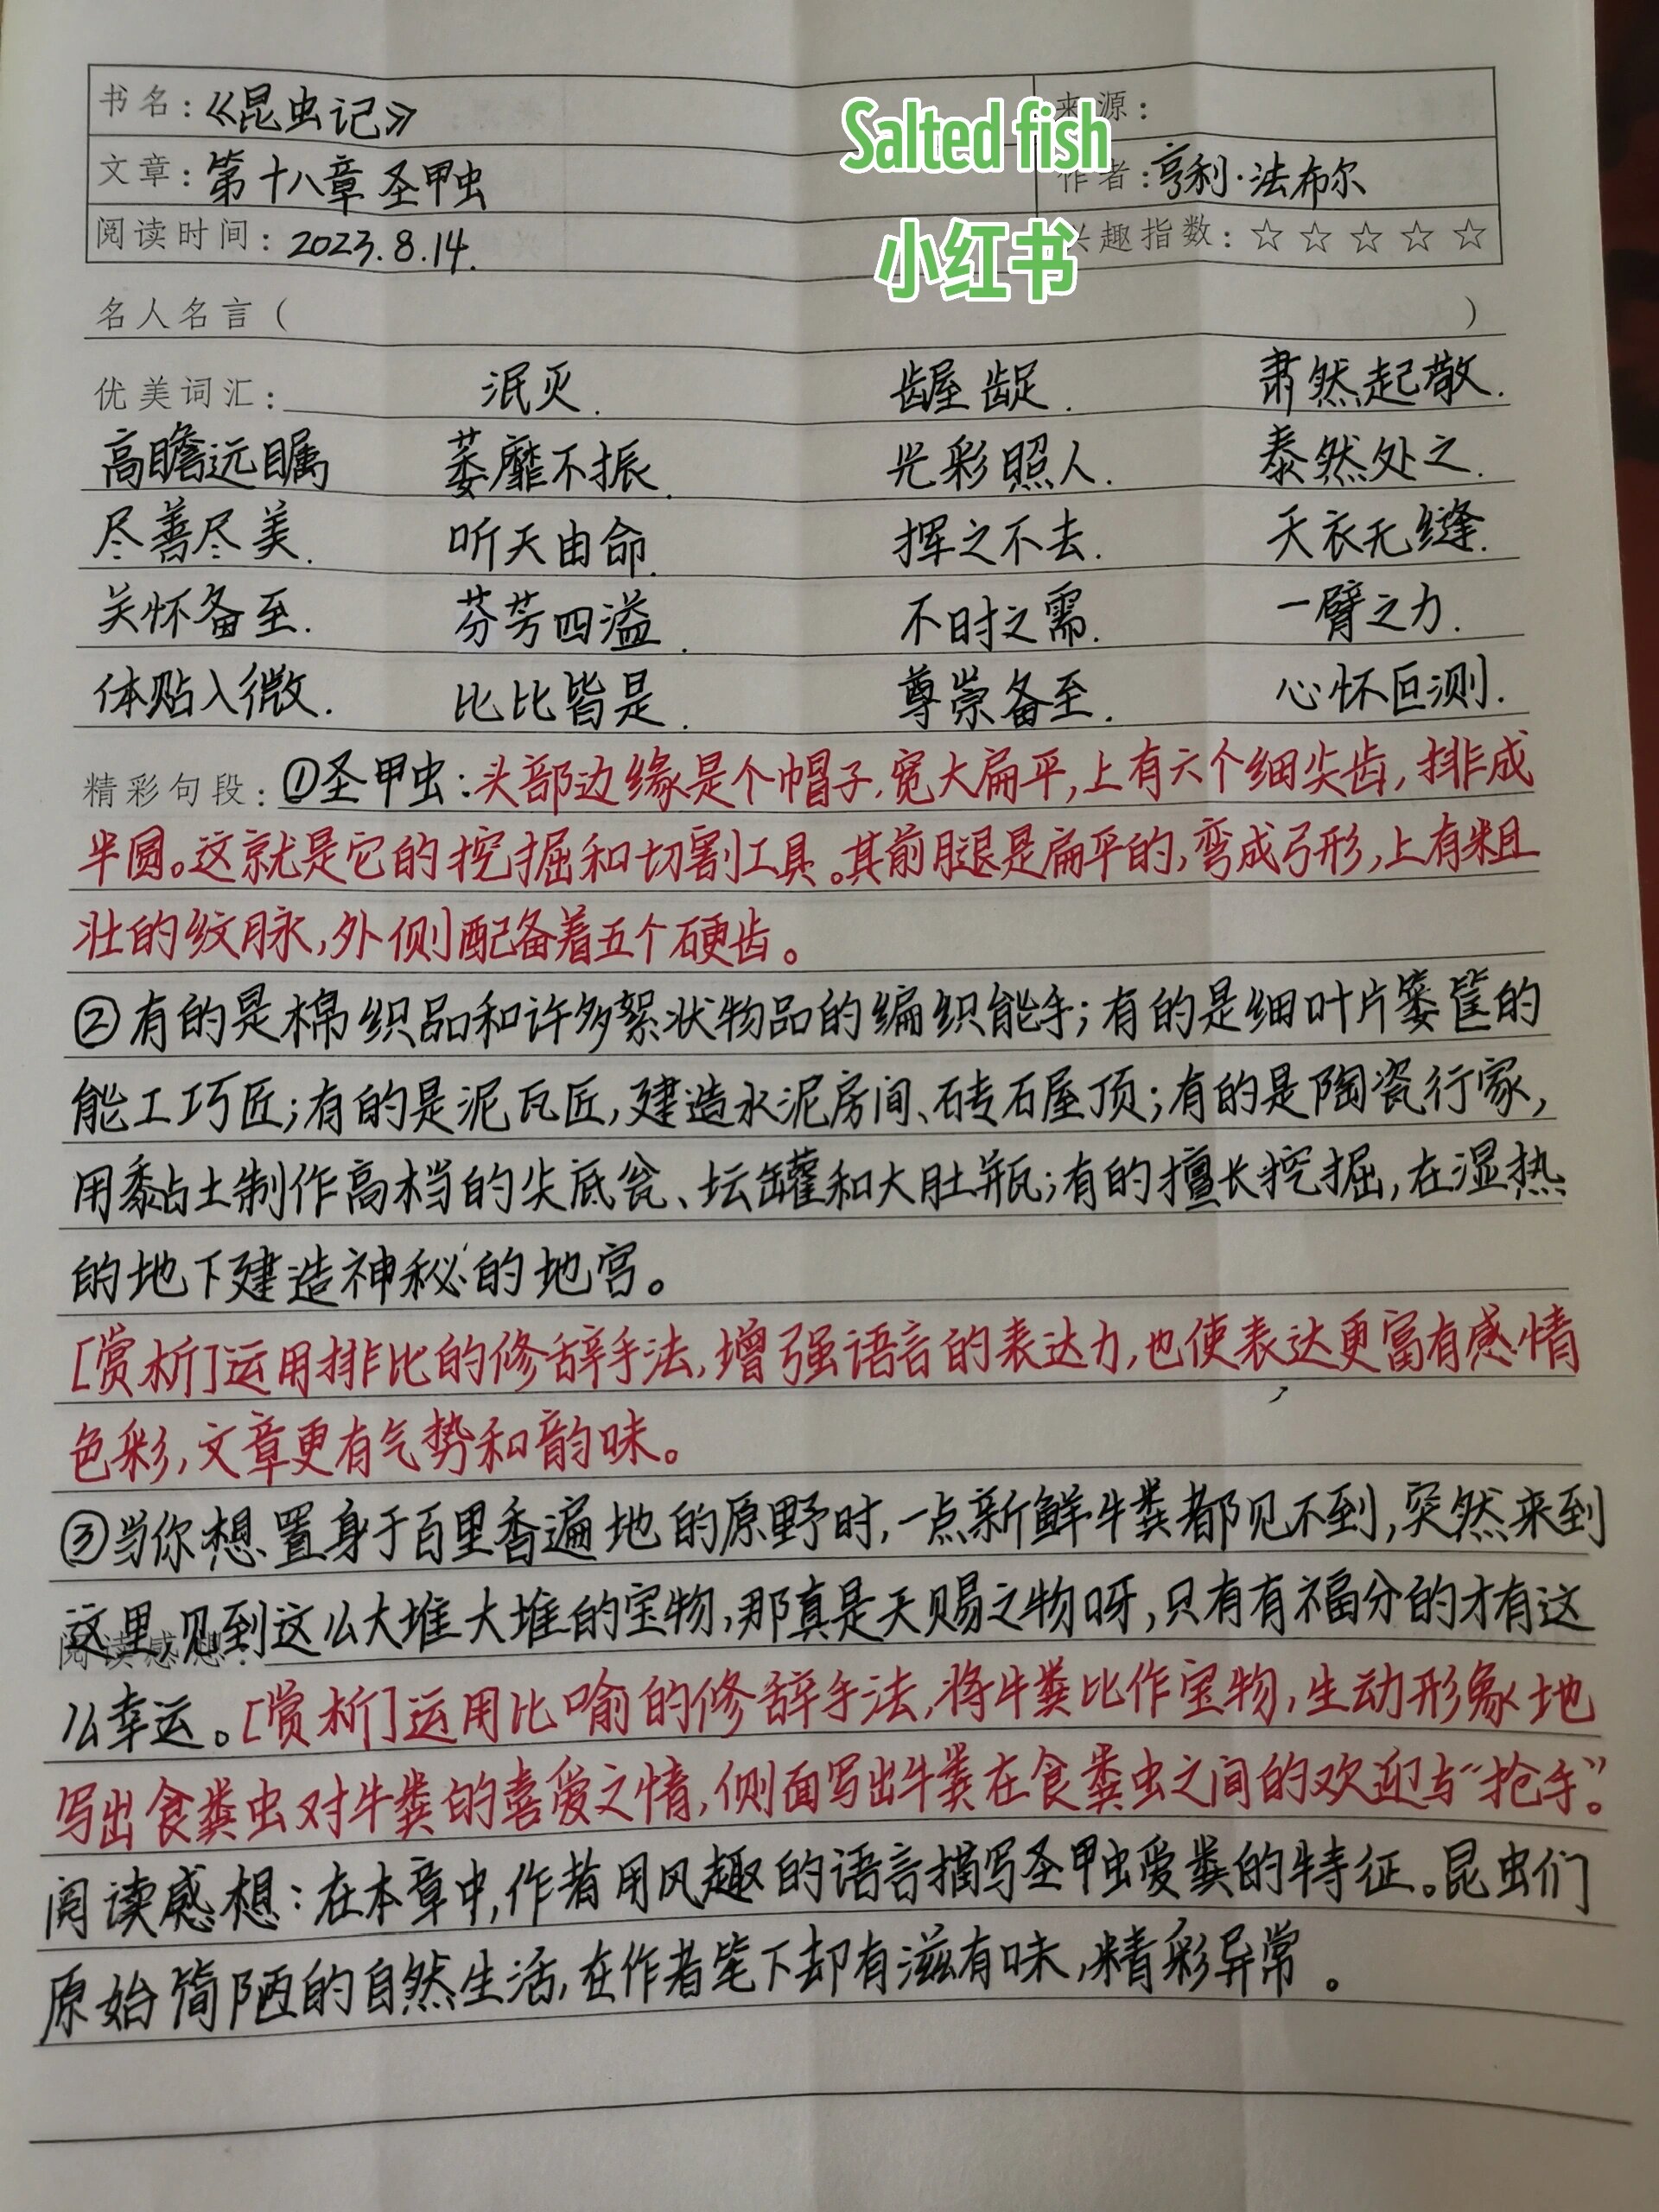 书名：《昆虫记》
来源：
Salted fish
文章：第十八章 圣甲虫
作者：亨利·法布尔
阅读时间：2023.8.14.
兴趣指数：☆☆☆☆☆
小红书
名人名言（ ）
优美词汇： 泯灭. 龌龊. 肃然起敬.
高瞻远瞩 萎靡不振. 光彩照人. 泰然处之.
尽善尽美. 听天由命. 挥之不去. 天衣无缝.
关怀备至. 芬芳四溢. 不时之需. 一臂之力.
体贴入微. 比比皆是. 尊崇备至. 心怀叵测.
精彩句段：①圣甲虫：头部边缘是个帽子，宽大扁平，上有六个细尖齿，排成
半圆。这就是它的挖掘和切割工具。其前腿是扁平的，弯成弓形，上有粗
壮的纹脉，外侧配备着五个硬齿。
②有的是棉织品和许多絮状物品的编织能手；有的是细叶片篓筐的
能工巧匠；有的是泥瓦匠，建造水泥房间、砖石屋顶；有的是陶瓷行家，
用黏土制作高档的尖底瓮、坛罐和大肚瓶；有的擅长挖掘，在湿热
的地下建造神秘的地宫。
[赏析]运用排比的修辞手法，增强语言的表达力，也使表达更富有感情
色彩，文章更有气势和韵味。
③当你想置身于百里香遍地的原野时，一点新鲜牛粪都见不到，突然来到
这里，见到这么大堆大堆的宝物，那真是天赐之物呀，只有有福分的才有这
阅读感想：
么幸运。[赏析]运用比喻的修辞手法，将牛粪比作宝物，生动形象地
写出食粪虫对牛粪的喜爱之情，侧面写出牛粪在食粪虫之间的欢迎与“抢手”。
阅读感想：在本章中，作者用风趣的语言描写圣甲虫爱粪的特征。昆虫们
原始简陋的自然生活，在作者笔下却有滋有味，精彩异常。